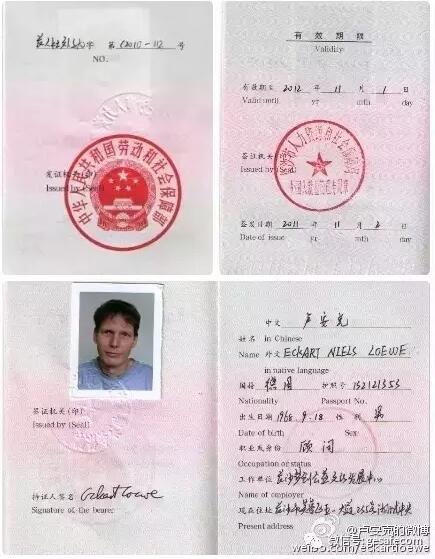 字 第 (2011)-112 号
NO.
中华人民共和国劳动和社会保障部
发证机关(印)
Issued by (Seal)
有效期限
Validity
有效期至 2012 11 1
Valid until yr mth day
签证机关(印)
Issued by (Seal)
签发日期 2011 11 2
Date of issue yr mth day
签证机关(印)
Issued by (Seal)
持证人签名 Eckart Loewe
Signature of the bearer
中文 卢安克
姓名 in Chinese
Name 外文 ECKART NIELS LOEWE
in native language
国籍 德国 护照号 152121353
Nationality Passport No.
出生日期 1968.9.18 性别 男
Date of birth Sex
职业或身份 顾问
Occupation or status
工作单位
Name of employer
现在住址
Present address
@卢安克的微博
weibo.com/eckartloewe